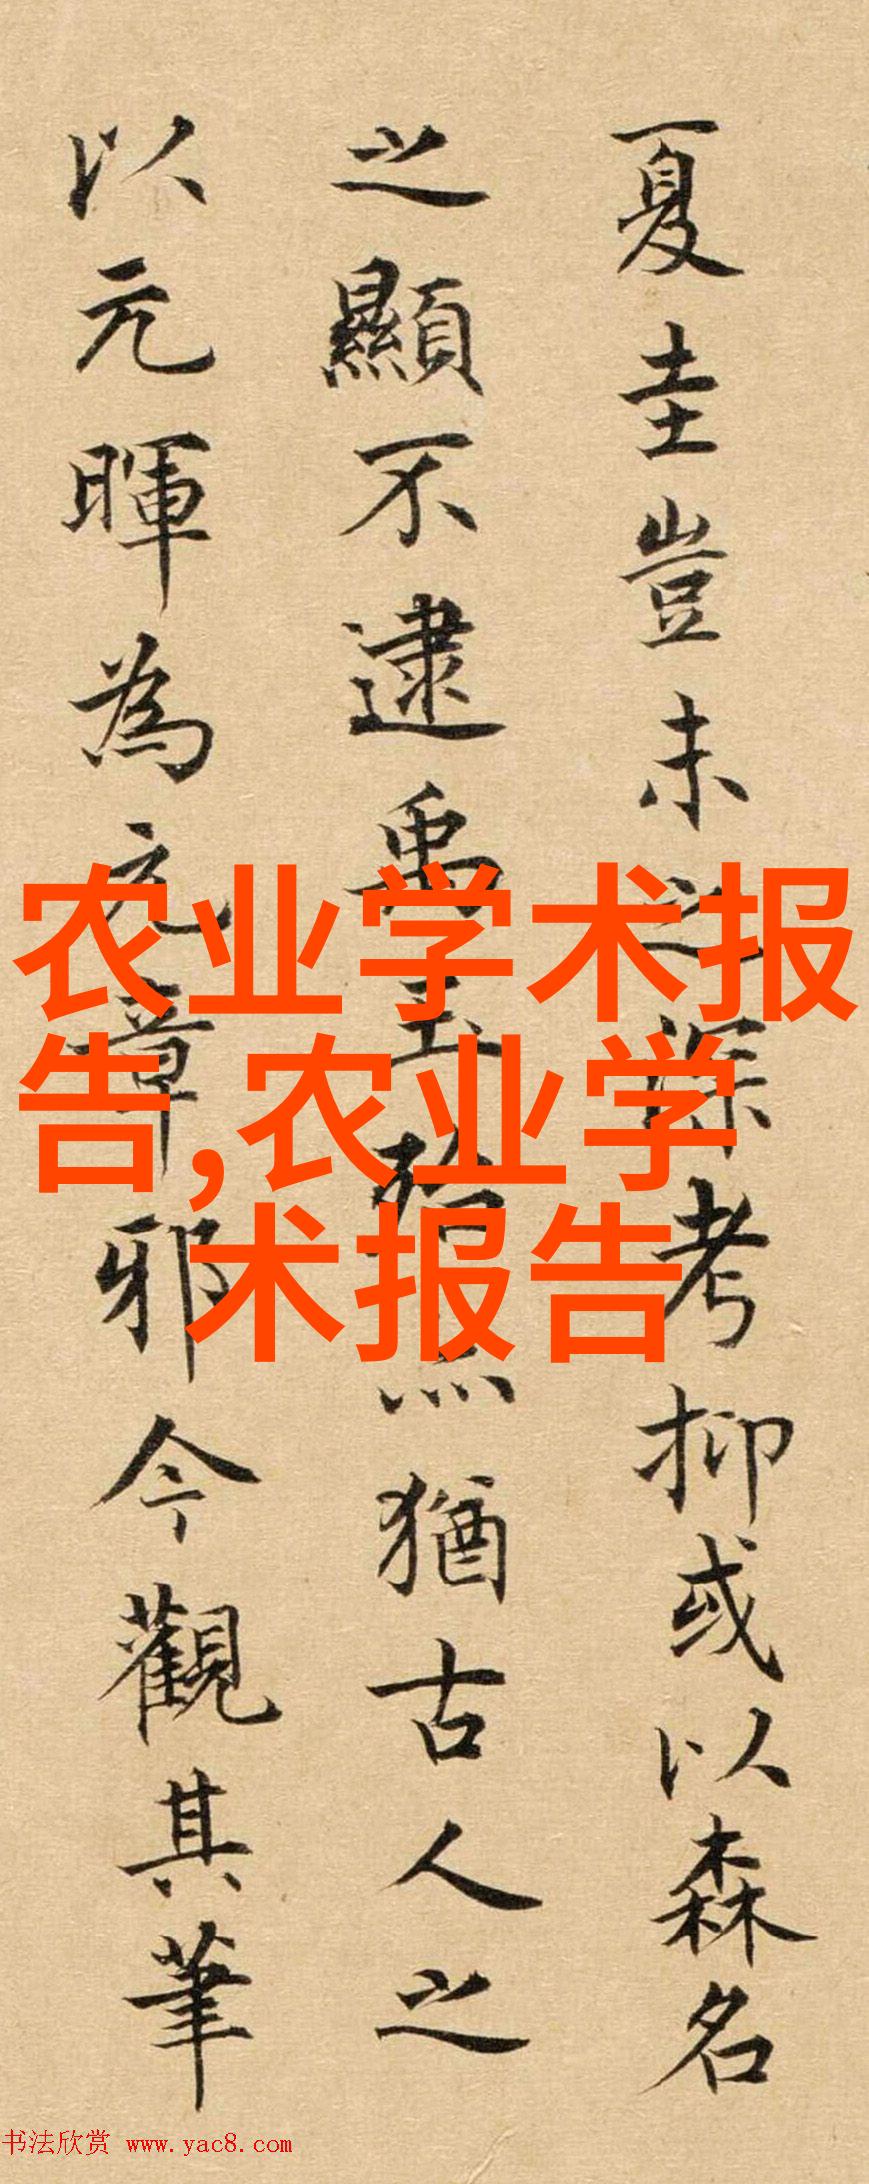 夏圭豈未之深考抑或以森名
之顯不逮禹玉 猶古人之
以元暉為元章邪今觀其筆
农业学术报
告,农业学
术报告
书法欣赏 www.yac8.com